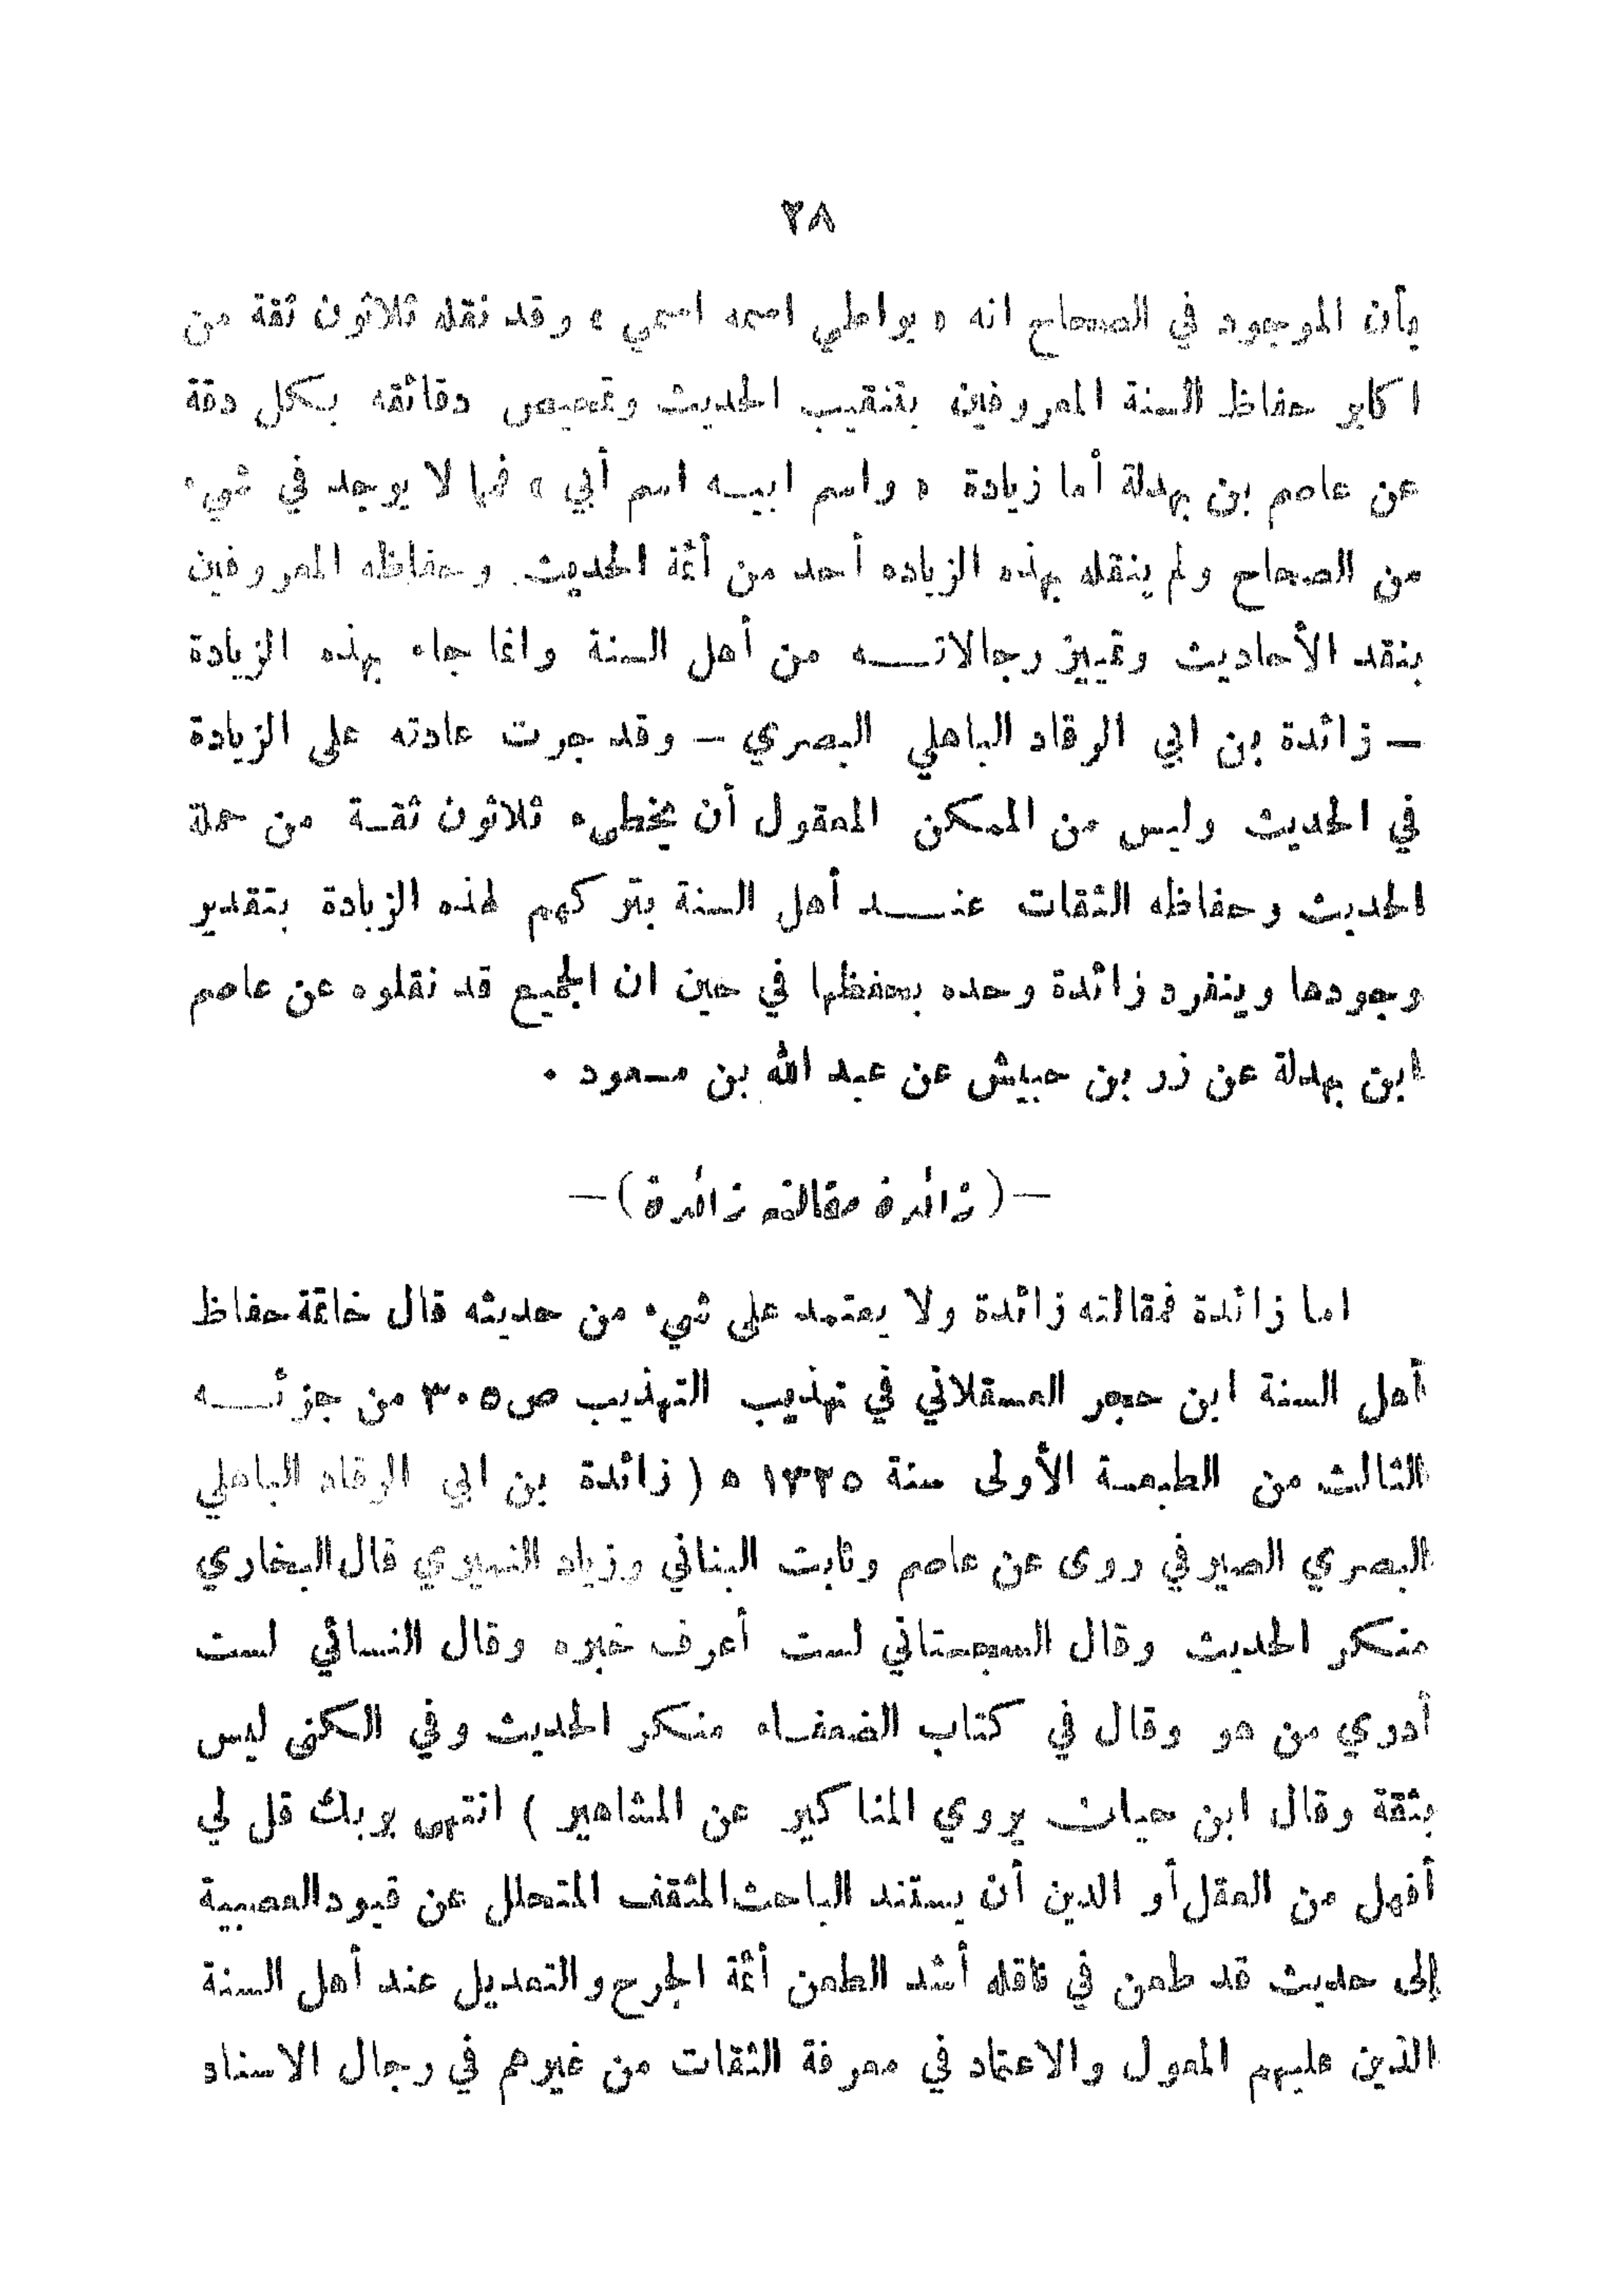 ٢٨
بأن الموجود في الصحاح انه « يواطي اسمه اسمي » وقد نقله ثلاثون ثقة من
اكابر حفاظ السنة المعروفين بتنقيب الحديث وتمحيص دقائقه بكل دقة
عن عاصم بن بهدلة أما زيادة « واسم ابيه اسم أبي » فمما لا يوجد في شيء
من الصحاح ولم ينقله بهذه الزياده أحد من أئمة الحديث وحفاظه المعروفين
بنقد الأحاديث وتمييز رجالاته من أهل السنة وانما جاء بهذه الزيادة
– زائدة بن ابي الرقاد الباهلي البصري – وقد جرت عادته على الزيادة
في الحديث وليس من الممكن المعقول أن يخطىء ثلاثون ثقة من حملة
الحديث وحفاظه الثقات عند أهل السنة بتركهم لهذه الزيادة بتقدير
وجودها وينفرد زائدة وحده بحفظها في حين ان الجميع قد نقلوه عن عاصم
ابن بهدلة عن زر بن حبيش عن عبد الله بن مسعود .
– ( زائدة مقالته زائدة ) –
اما زائدة فمقالته زائدة ولا يعتمد على شيء من حديثه قال خاتمة حفاظ
أهل السنة ابن حجر العسقلاني في تهذيب التهذيب ص ٣٠٥ من جزئه
الثالث من الطبعة الأولى سنة ١٣٢٥ ه ( زائدة بن ابي الرقاد الباهلي
البصري الصيرفي روى عن عاصم وثابت البناني وزياد النميري قال البخاري
منكر الحديث وقال السجستاني لست أعرف خبره وقال النسائي لست
أدري من هو وقال في كتاب الضعفاء منكر الحديث وفي الكنى ليس
بثقة وقال ابن حبان يروي المناكير عن المشاهير ) انتهى بربك قل لي
أفهل من العقل أو الدين أن يستند الباحث المثقف المتحلل عن قيود العصبية
إلى حديث قد طعن في ناقله أشد الطعن أئمة الجرح والتعديل عند أهل السنة
الذين عليهم المعول والاعتماد في معرفة الثقات من غيرهم في رجال الاسناد